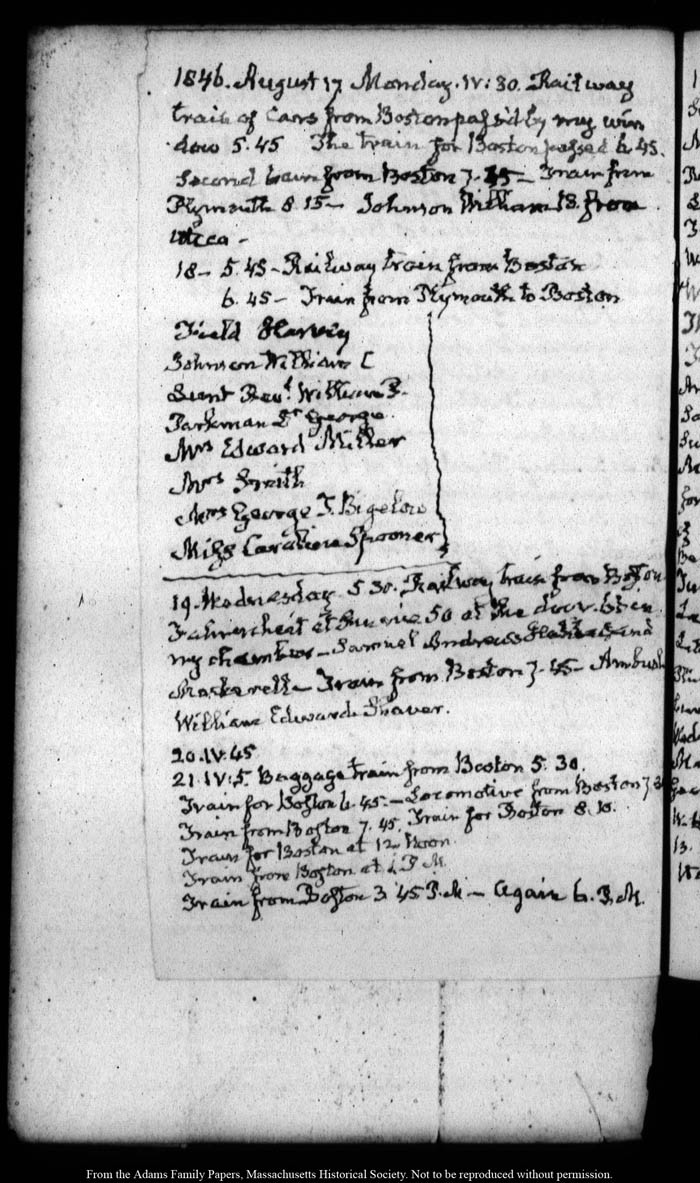 1846. August 17. Monday. IV: 30. Railway
train of Cars from Boston passed by my win
dow 5.45 The train for Boston passed 6.45.
Second train from Boston 7.45 – Train from
Plymouth 8.15 – Johnson William 18. from
Utica –
18 – 5.45 – Railway train from Boston
6.45 – Train from Plymouth to Boston
Field Harvey
Johnson William C
Lunt Revd. William P.
Parkman Dr George.
Mrs Edward Miller
Mrs Smith
Mrs George T. Bigelow
Miss Caroline Spooner
19. Wednesday. 5 30. Railway train from Boston
Fahrenheit at Sunrise 50 at the door. in
my chamber – Samuel Andrews and
– Train from Boston 7.45 – Ambush
William Edward Thaver.
20. IV. 45
21. IV: 5. Baggage train from Boston 5. 30.
Train for Boston 6. 45. – Locomotive from Boston 7.
Train from Boston 7. 45. Train for Boston 8.
Train for Boston at 12 Noon
Train from Boston at P. M.
Train from Boston 3 45 P.M – Again 6. P.M.
From the Adams Family Papers, Massachusetts Historical Society. Not to be reproduced without permission.